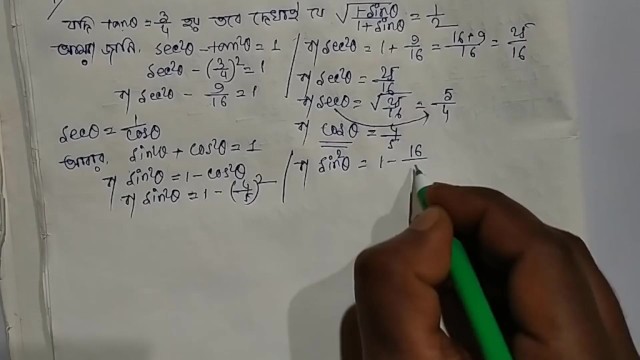 যদি tanθ = 3/4 হয় তবে দেখাও যে √(1-sinθ)/(1+sinθ) = 1/2
আমরা জানি, sec²θ - tan²θ = 1
sec²θ - (3/4)² = 1
বা sec²θ - 9/16 = 1
বা sec²θ = 1 + 9/16 = (16+9)/16 = 25/16
বা sec²θ = 25/16
বা secθ = √25/16 = 5/4
secθ = 1/cosθ
বা cosθ = 4/5
আবার, sin²θ + cos²θ = 1
বা sin²θ = 1 - cos²θ
বা sin²θ = 1 - (4/5)²
বা sin²θ = 1 - 16/